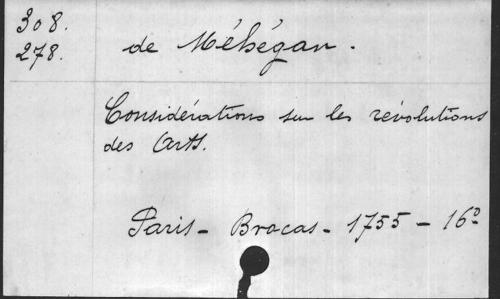 308.
278.
de Méhégan.
Considérations sur les révolutions
des Arts.
Paris - Brocas - 1755 - 16º